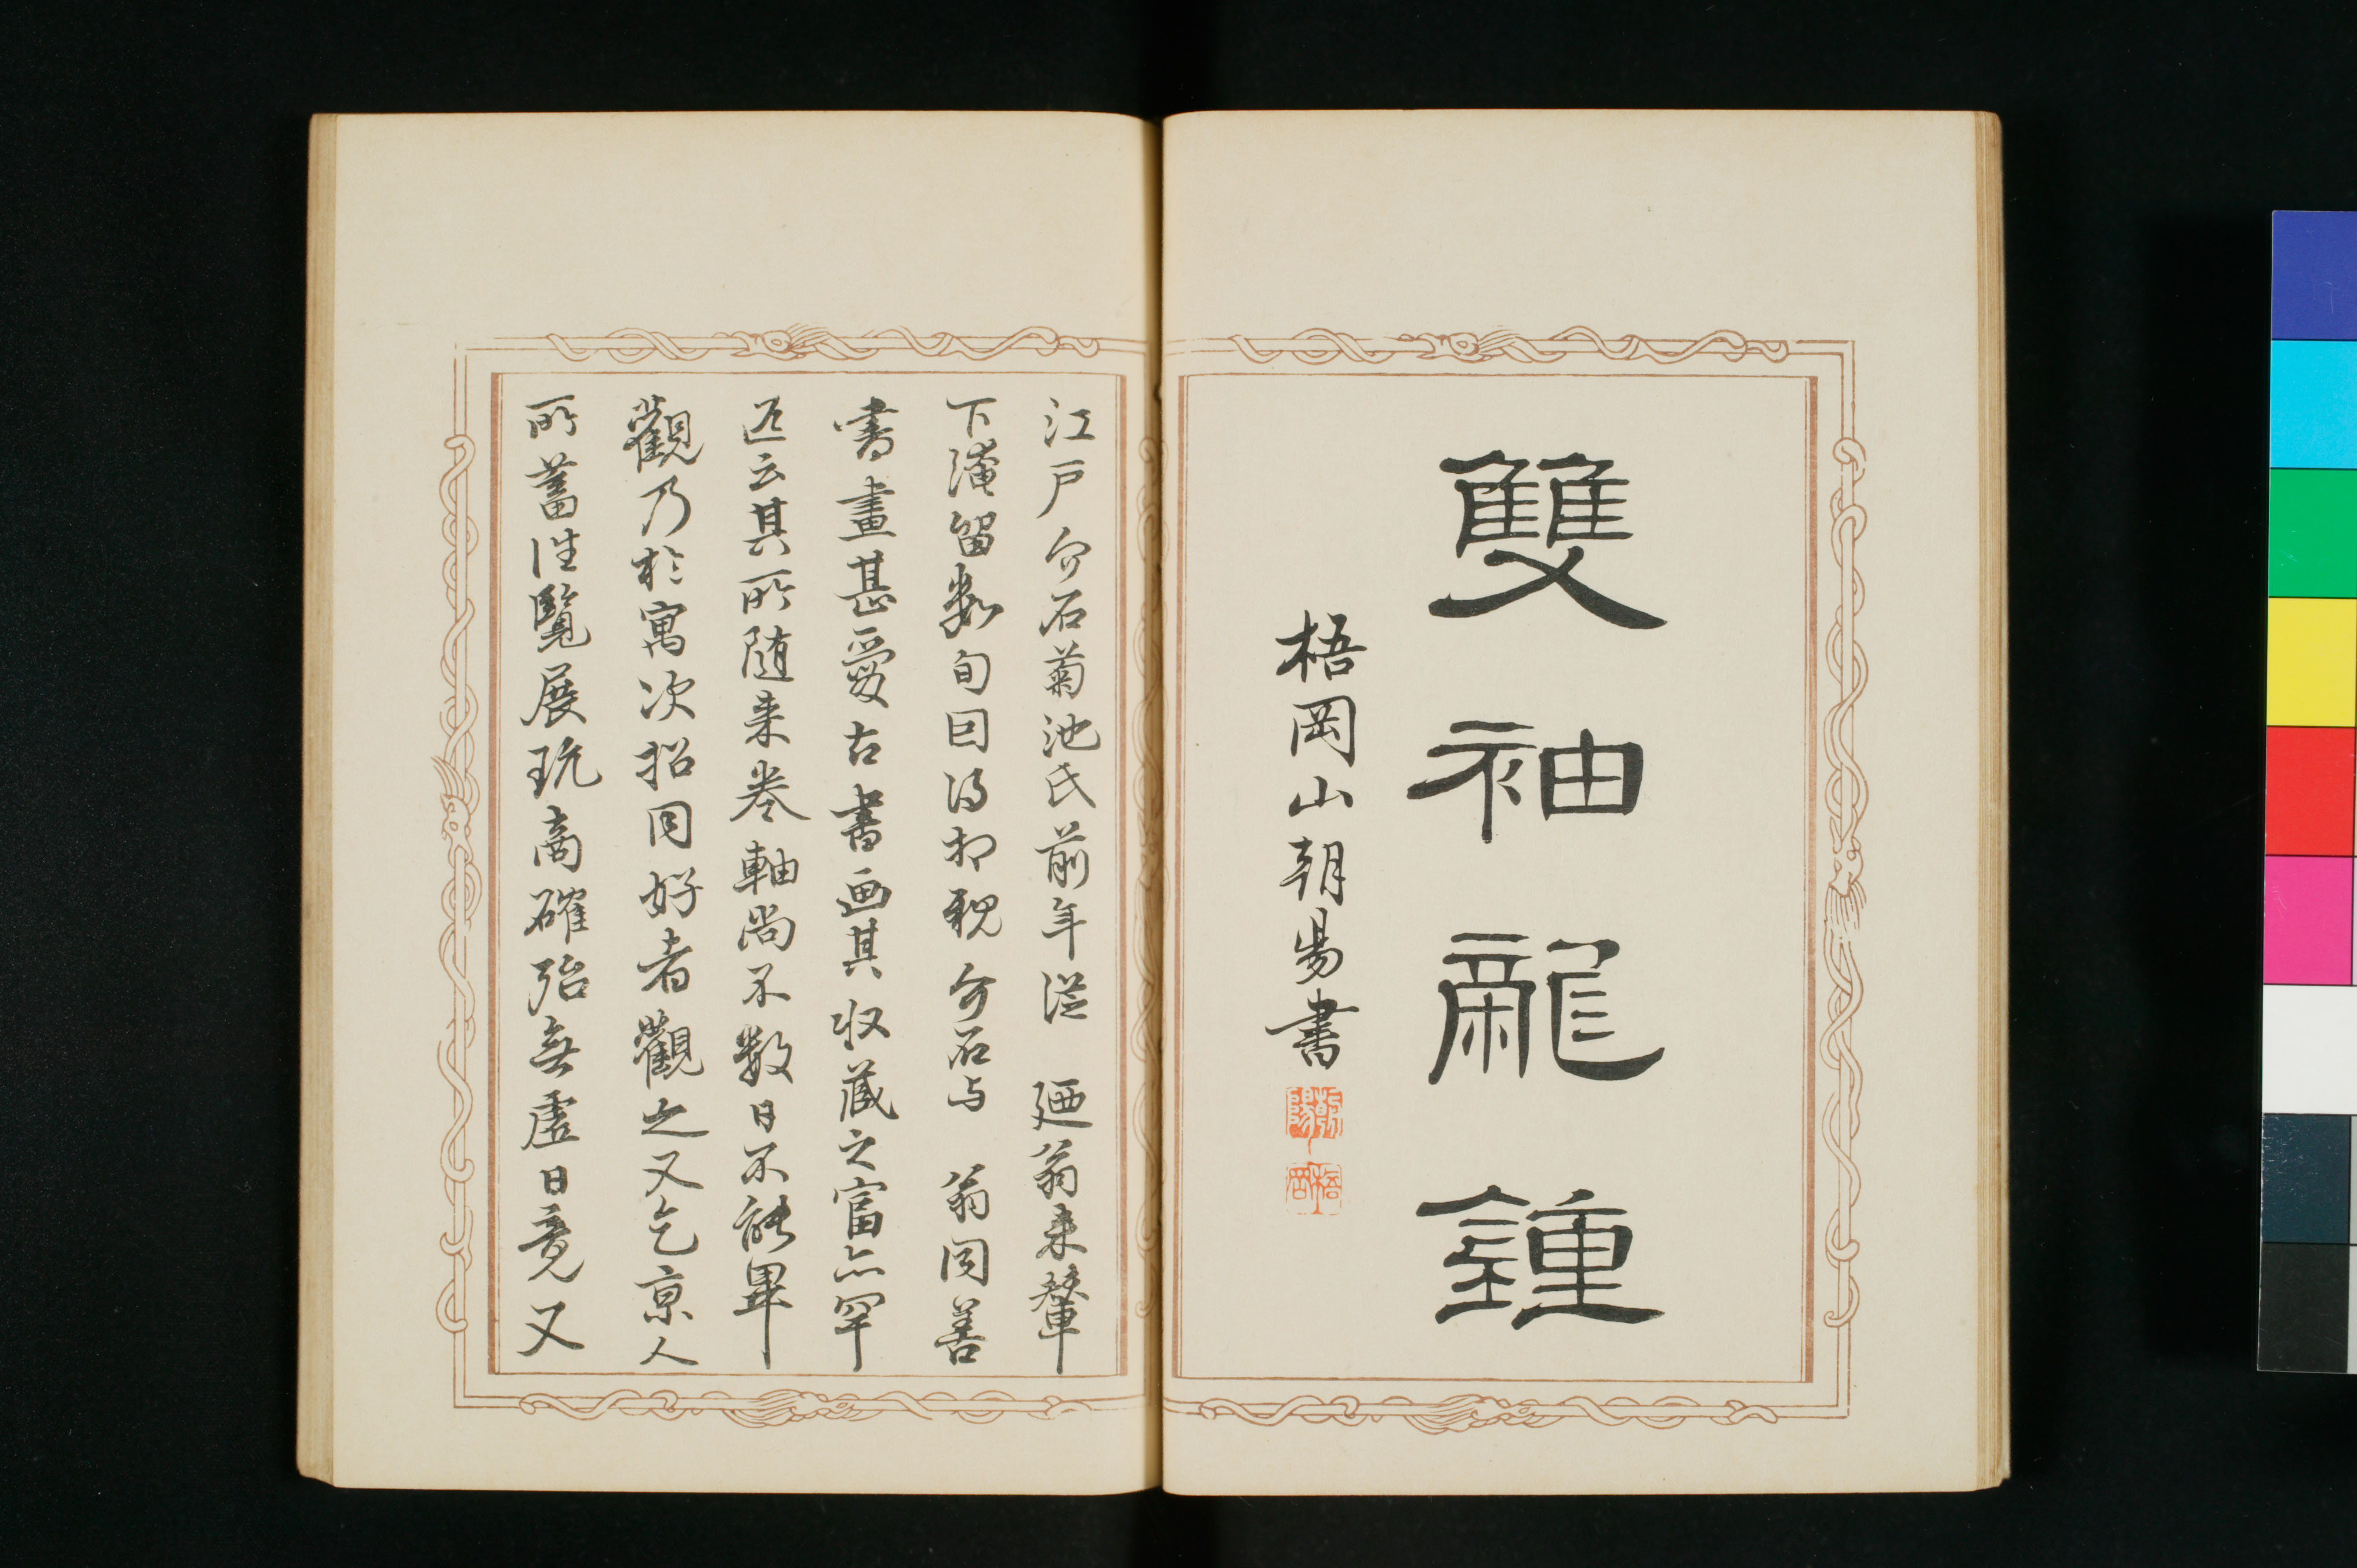 雙袖龍鍾
梧岡山朝陽書
朝陽
梧岡
江戸介石菊池氏前年從 廼翁来輦
下淹留数旬因得相親介石与 翁同善
書畫甚愛古書画其收藏之富亦罕
匹云其所随来巻軸尚不数日不能畢
觀乃於寓次招同好者觀之又乞京人
所蓄往覧展玩商確殆無虚日竟又